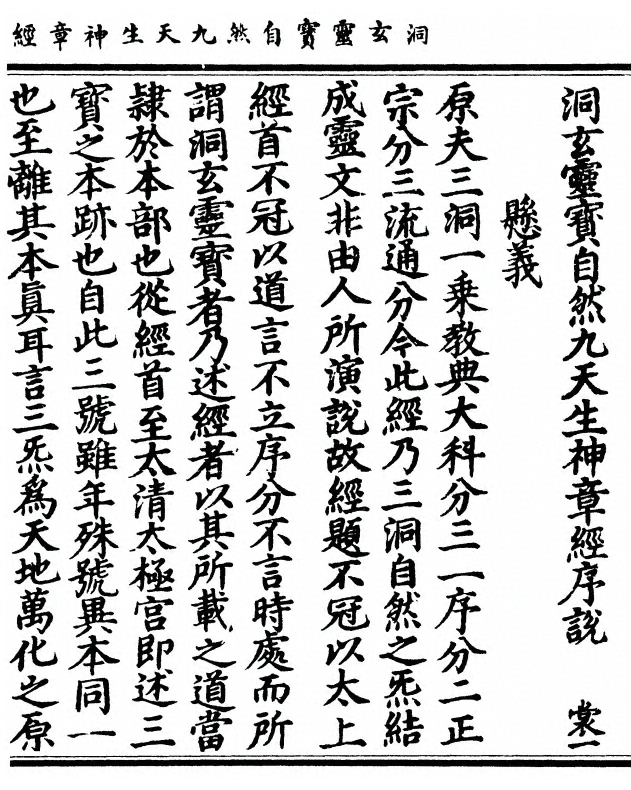 洞玄靈寶自然九天生神章經
洞玄靈寶自然九天生神章經序說 裳一
懸義
原夫三洞一乘教典大科分三一序分二正
宗分三流通分今此經乃三洞自然之炁結
成靈文非由人所演說故經題不冠以太上
經首不冠以道言不立序分不言時處而所
謂洞玄靈寶者乃述經者以其所載之道當
隷於本部也從經首至太清太極宮即述三
寶之本跡也自此三號雖年殊號異本同一
也至離其本真耳言三炁為天地萬化之原